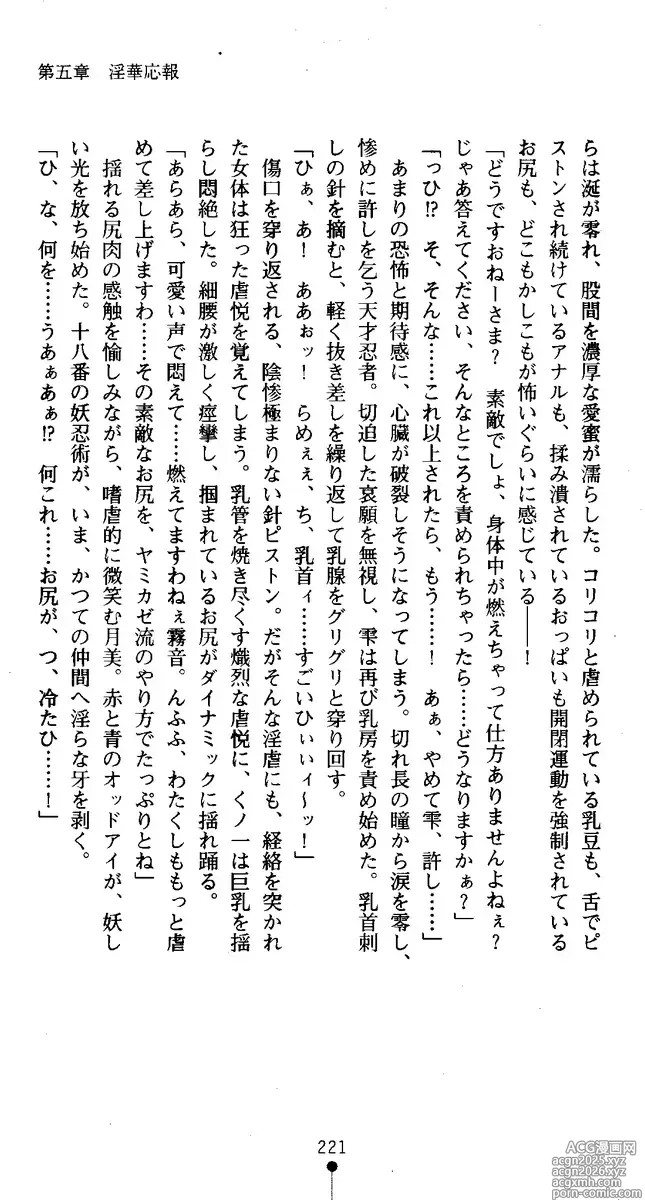 第五章　淫華応報
らは涎が零れ、股間を濃厚な愛蜜が濡らした。コリコリと虐められている乳豆も、舌でピ
ストンされ続けているアナルも、揉み潰されているおっぱいも開閉運動を強制されている
お尻も、どこもかしこもが怖いぐらいに感じている――！
「どうですおねーさま？　素敵でしょ、身体中が燃えちゃって仕方ありませんよねぇ？
じゃあ答えてください、そんなところを責められちゃったら……どうなりますかぁ？」
「っひ!?　そ、そんな……これ以上されたら、もう……！　あぁ、やめて雫、許し……」
あまりの恐怖と期待感に、心臓が破裂しそうになってしまう。切れ長の瞳から涙を零し、
惨めに許しを乞う天才忍者。切迫した哀願を無視し、雫は再び乳房を責め始めた。乳首刺
しの針を摘むと、軽く抜き差しを繰り返して乳腺をグリグリと穿り回す。
「ひぁ、あ！　ああぉッ！　らめぇぇ、ち、乳首ィ……すごいひぃぃィ～ッ！」
傷口を穿り返される、陰惨極まりない針ピストン。だがそんな淫虐にも、経絡を突かれ
た女体は狂った虐悦を覚えてしまう。乳管を焼き尽くす熾烈な虐悦に、くノ一は巨乳を揺
らし悶絶した。細腰が激しく痙攣し、掴まれているお尻がダイナミックに揺れ踊る。
「あらあら、可愛い声で悶えて……燃えてますわねぇ霧音。んふふ、わたくしももっと虐
めて差し上げますわ……その素敵なお尻を、ヤミカゼ流のやり方でたっぷりとね」
揺れる尻肉の感触を愉しみながら、嗜虐的に微笑む月美。赤と青のオッドアイが、妖し
い光を放ち始めた。十八番の妖忍術が、いま、かつての仲間へ淫らな牙を剥く。
「ひ、な、何を……うあぁあぁ!?　何これ……お尻が、つ、冷たひ……！」
221
ACG漫画网
acgn2025.xyz
acgn2026.xyz
acgxmh.com
porn-comic.com